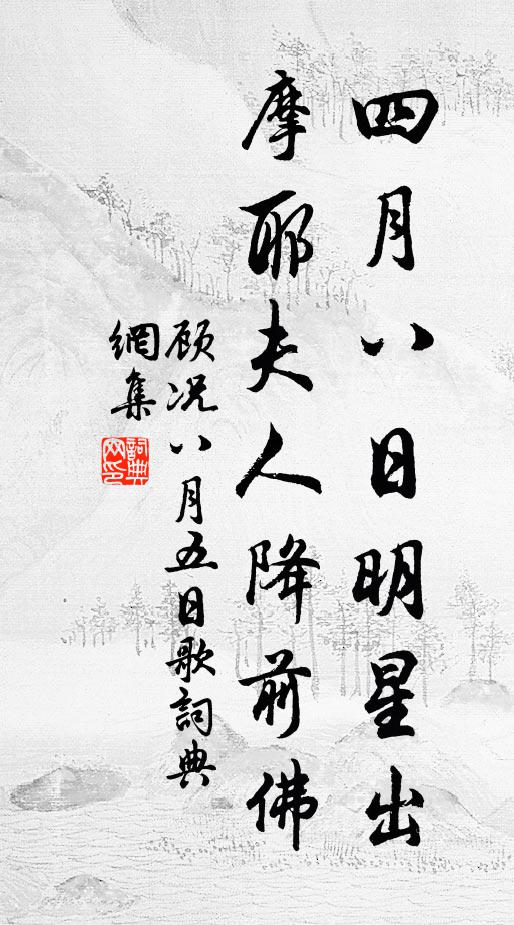 四月八日明星出
摩耶夫人降前佛
顾况八月五日歌詞典
網集
詞典網印